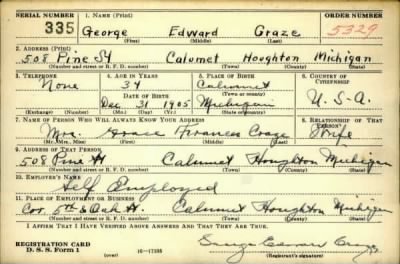 SERIAL NUMBER 1. NAME (Print) ORDER NUMBER
335 George Edward Graze 5329
(First) (Middle) (Last)
2. ADDRESS (Print)
508 Pine St Calumet Houghton Michigan
(Number and street or R. F. D. number) (Town) (County) (State)
3. TELEPHONE 4. AGE IN YEARS 5. PLACE OF BIRTH 6. COUNTRY OF CITIZENSHIP
None 34 Calumet
DATE OF BIRTH (Town or county)
Dec 31 1905 Michigan U.S.A.
(Exchange) (Number) (Mo.) (Day) (Yr.) (State or country)
7. NAME OF PERSON WHO WILL ALWAYS KNOW YOUR ADDRESS 8. RELATIONSHIP OF THAT PERSON
Mrs. Grace Frances Wife
(Mr., Mrs., Miss) (First) (Middle) (Last)
9. ADDRESS OF THAT PERSON
508 Pine St. Calumet Houghton Michigan
(Number and street or R. F. D. number) (Town) (County) (State)
10. EMPLOYER'S NAME
Self Employed
11. PLACE OF EMPLOYMENT OR BUSINESS
Cor. 5th & Oak St. Calumet Houghton Michigan
(Number and street or R. F. D. number) (Town) (County) (State)
I AFFIRM THAT I HAVE VERIFIED ABOVE ANSWERS AND THAT THEY ARE TRUE.
REGISTRATION CARD
D. S. S. Form 1 (over) 16—17105 (Registrant's signature)